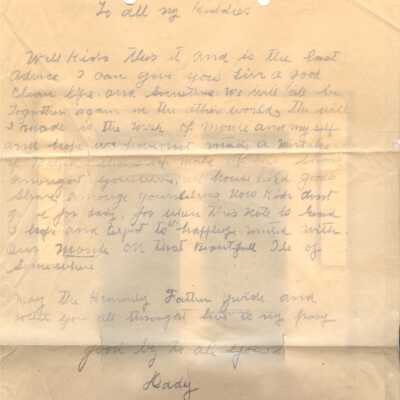 To all my Kiddies
Well Kids this it and is the last
Advice I can give you Live a good
Clean life and sometime We will all be
Together again in the other world, the will
I made is the Work of Momie and my self
and hope we have not made a mistake
amongst yourselves, all
Share amongst yourselves Now Kids dont
for me for sady, for when this Note is Read
I hope and Expect to be happley united with
our Momie on that Beautifull Isle of
Somewhere
May the Heavenly Father guide and
you all through life is my pray
good by to all yours
Dady